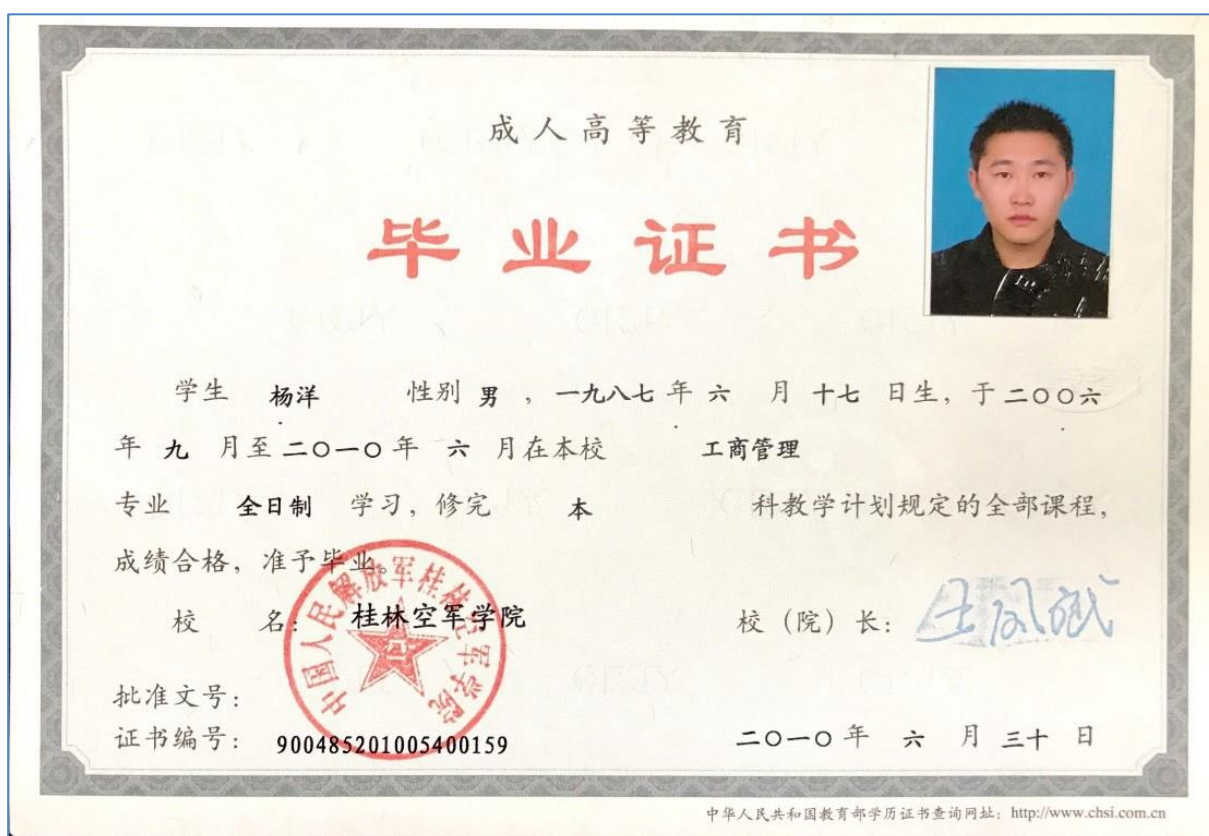 成人高等教育
毕业证书
学生 杨洋 性别 男 ，一九八七 年 六 月 十七 日生，于 二〇〇六
年 九 月至 二〇一〇 年 六 月在本校 工商管理
专业 全日制 学习，修完 本 科教学计划规定的全部课程，
成绩合格，准予毕业。
校 名： 桂林空军学院 校（院）长： 王凤斌
中国人民解放军桂林空军学院
批准文号：
证书编号： 900485201005400159 二〇一〇 年 六 月 三十 日
中华人民共和国教育部学历证书查询网址：http://www.chsi.com.cn